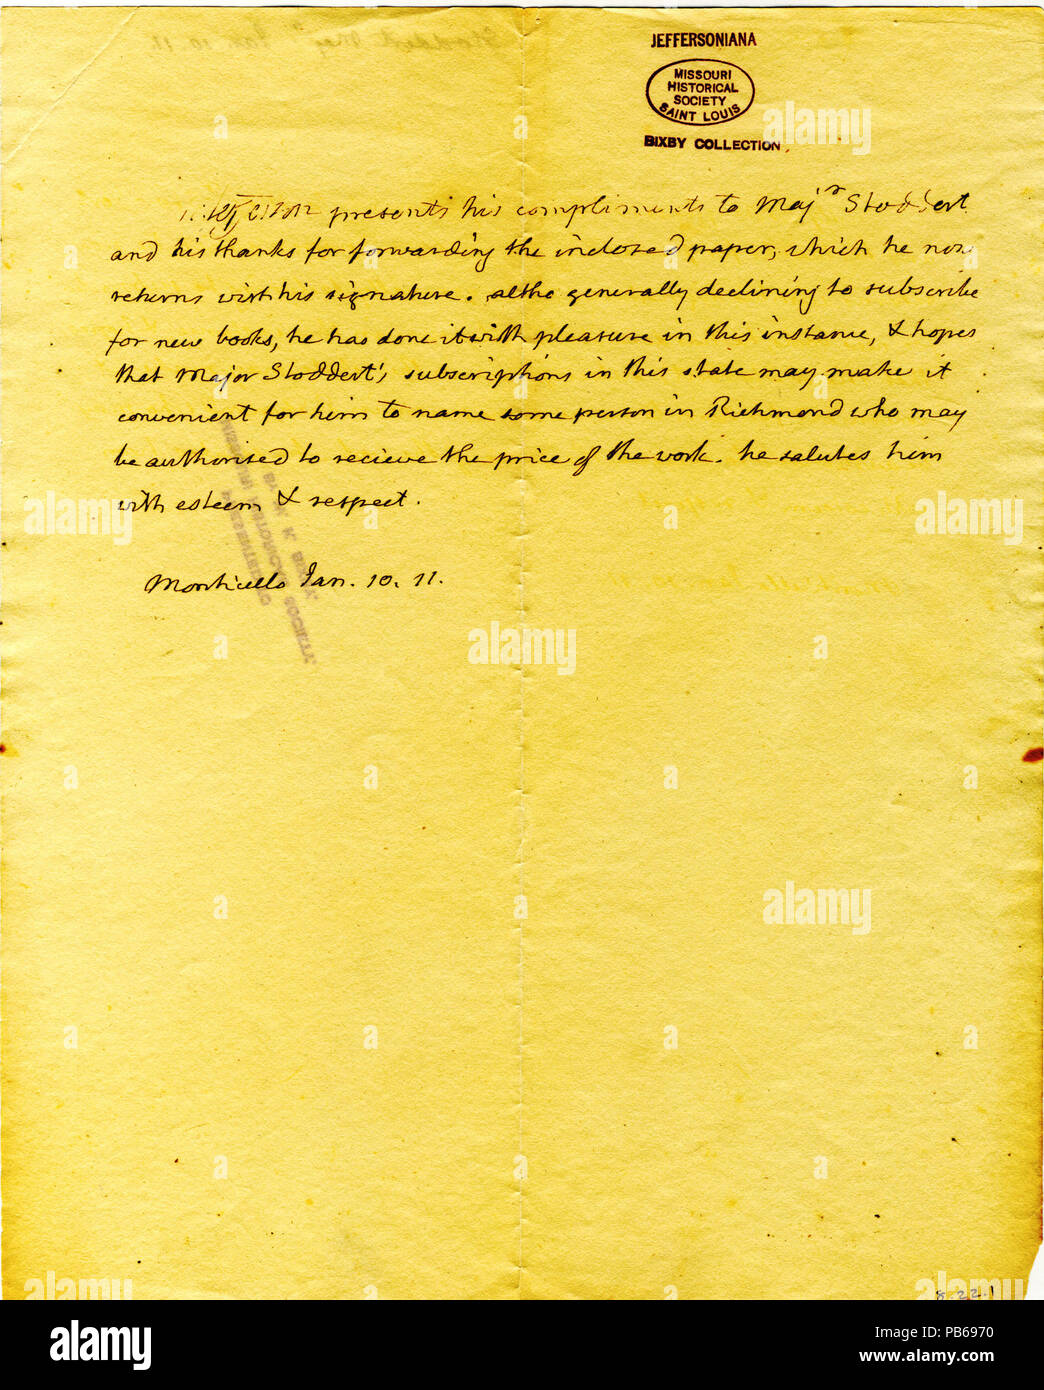 Stoddert Maj^r Jan. 10. 11.
JEFFERSONIANA
MISSOURI
HISTORICAL
SOCIETY
SAINT LOUIS
BIXBY COLLECTION
Jefferson presents his compliments to Maj^r Stoddert
and his thanks for forwarding the inclosed paper, which he now
returns with his signature. altho generally declining to subscribe
for new books, he has done it with pleasure in this instance, & hopes
that Major Stoddert's subscriptions in this state may make it
convenient for him to name some person in Richmond who may
be authorised to recieve the price of the work. he salutes him
with esteem & respect.
Monticello Jan. 10. 11.
PRESENTED TO
MISSOURI HISTORICAL SOCIETY
BY W. K. BIXBY
8.22.1
a alamy
alamy
Image ID: PB6970
www.alamy.com